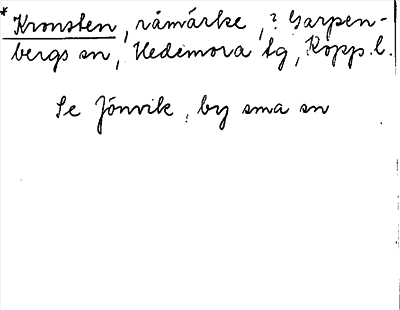 * Kronsten, råmärke, ? Garpen-
bergs sn, Hedemora tg, Kopp. l.
Se Jönvik, by sma sn